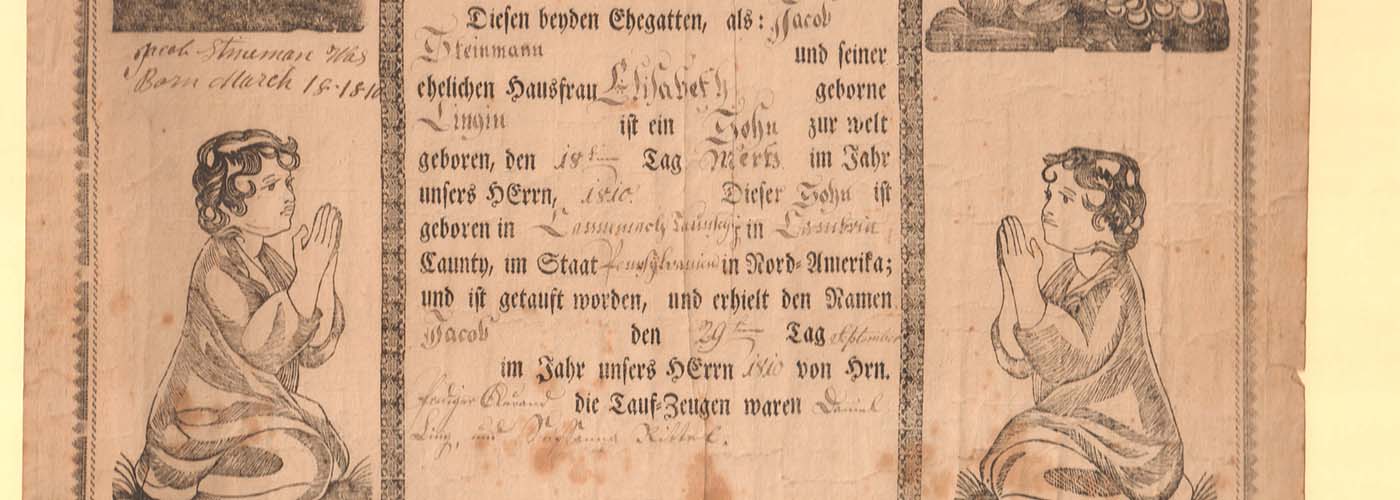 Jacob Stineman Was
Born March 18-1810
Diesen beyden Ehegatten, als: Jacob
Steinmann und seiner
ehelichen Hausfrau Elisabeth geborne
Lingin ist ein Sohn zur welt
geboren, den 18ten Tag Merts im Jahr
unsers HErrn, 1810. Dieser Sohn ist
geboren in Taunschip in Cambria
Caunty, im Staat Pensylvanien in Nord-Amerika;
und ist getauft worden, und erhielt den Namen
Jacob den 29ten Tag September
im Jahr unsers HErrn 1810 von Hrn.
die Tauf-Zeugen waren Daniel
Ling, und Sussanna Rittel.